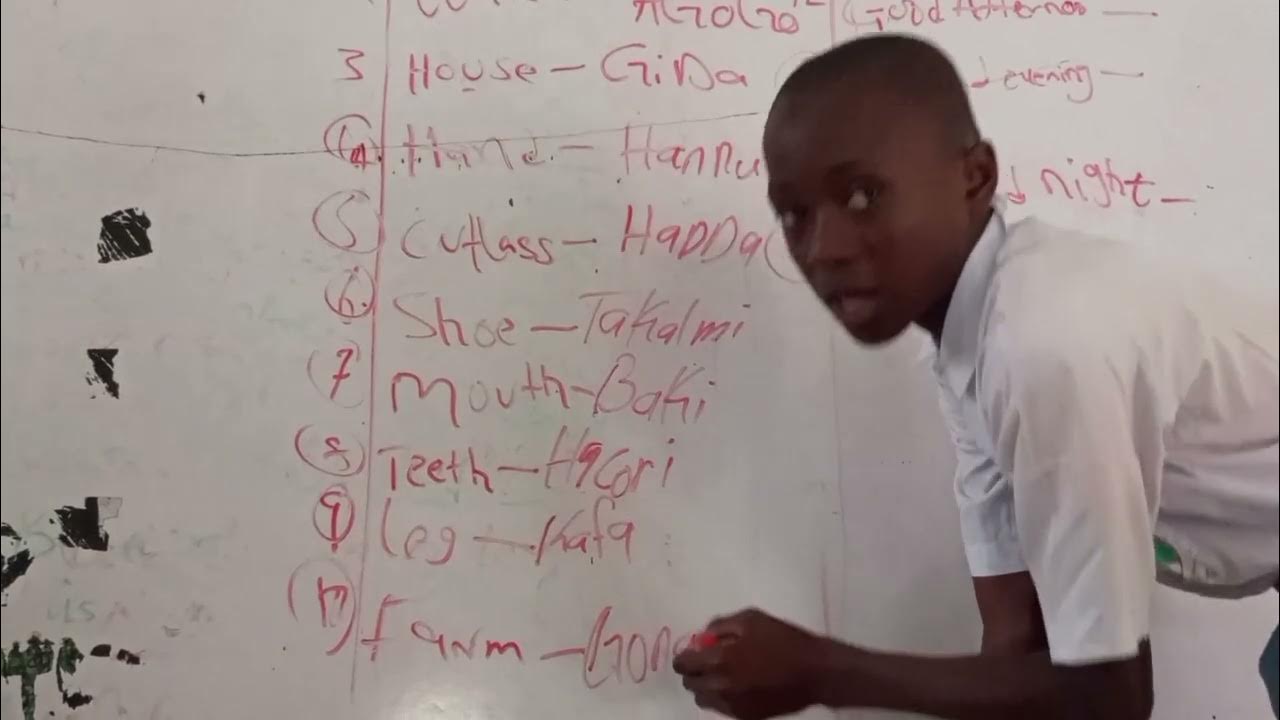 Good Afternoo —
3 House - GiDa
evening —
(4) Hand - Hannu
night -
(5) Cutlass - HaDDa
(6) Shoe - Takalmi
(7) Mouth - Baki
(8) Teeth - Hacori
(9) Leg - Kafa
(10) Farm - Gona